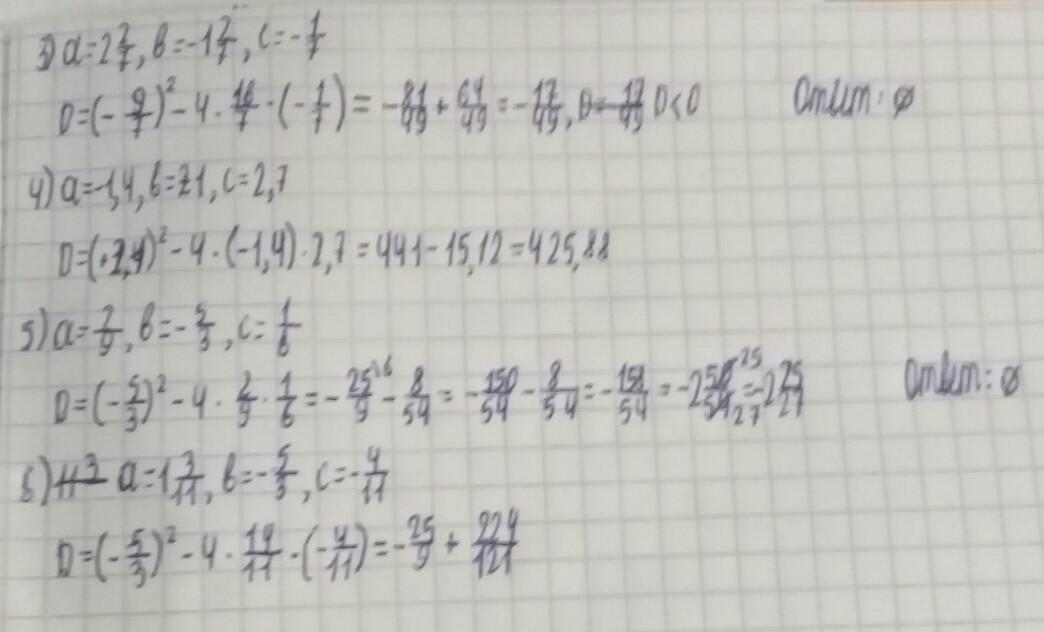 3) a=2 2/7, b=-1 2/7, c=-1/7
D=(-9/7)²-4·16/7·(-1/7)=-81/49+64/49=-17/49, D=-17/49 D<0 Ответ: ∅
4) a=-1,4, b=21, c=2,7
D=(+2,4)²-4·(-1,4)·2,7=441-15,12=425,88
5) a=2/9, b=-5/3, c=1/6
D=(-5/3)²-4·2/9·1/6=-25/9-8/54=-150/54-8/54=-158/54=-2 50/54=-2 25/27 Ответ: ∅
6) a=1 3/11, b=-5/3, c=-4/11
D=(-5/3)²-4·14/11·(-4/11)=-25/9+224/121